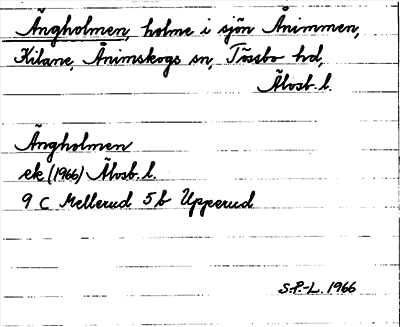 Ängholmen, holme i sjön Ånimmen,
Kilane, Ånimskogs sn, Tössbo hd,
Älvsb. l.
Ängholmen
ek (1966) Älvsb. l.
9 C Mellerud 5 b Upperud
S.P.-L. 1966